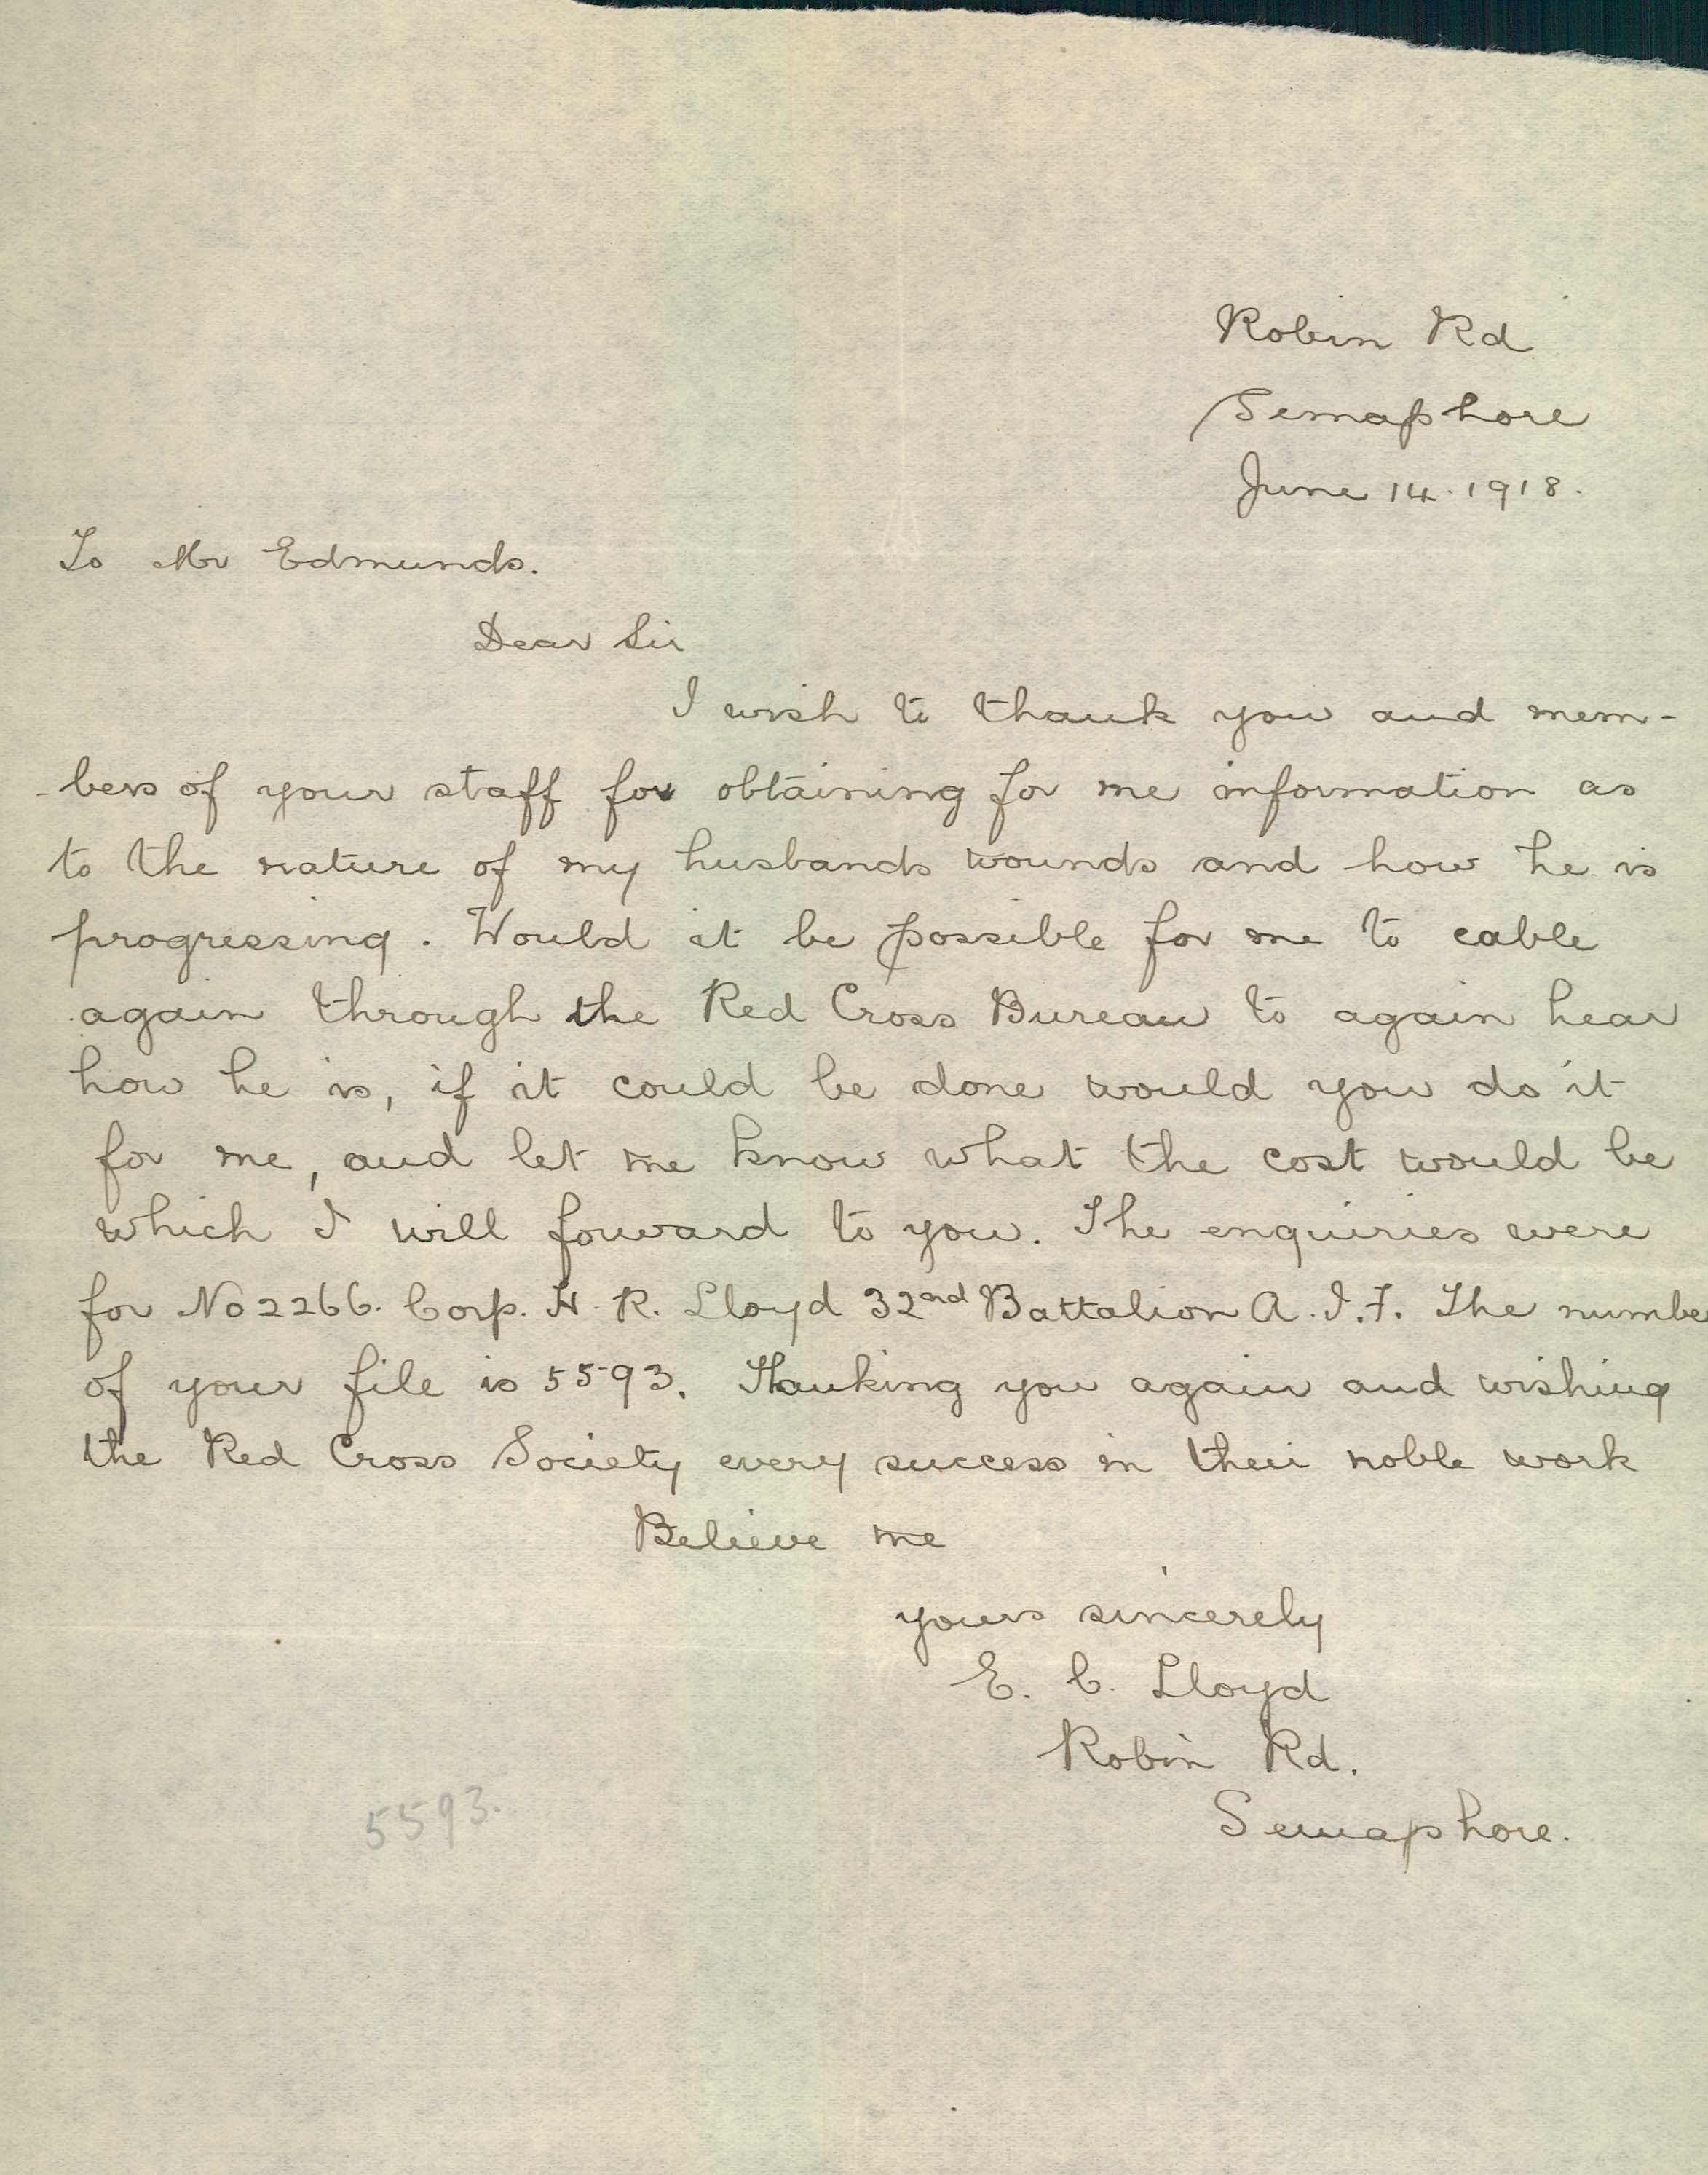 Robin Rd
Semaphore
June 14. 1918.
To Mr Edmunds.
Dear Sir
I wish to thank you and mem-
-bers of your staff for obtaining for me information as
to the nature of my husbands wounds and how he is
progressing. Would it be possible for me to cable
again through the Red Cross Bureau to again hear
how he is, if it could be done would you do it
for me, and let me know what the cost would be
which I will forward to you. The enquiries were
for No 2266. Corp. H. R. Lloyd 32nd Battalion A.I.F. The numbe
of your file is 5593. Thanking you again and wishing
the Red Cross Society every success in their noble work
Believe me
yours sincerely
E. C. Lloyd
Robin Rd.
Semaphore.
5593.